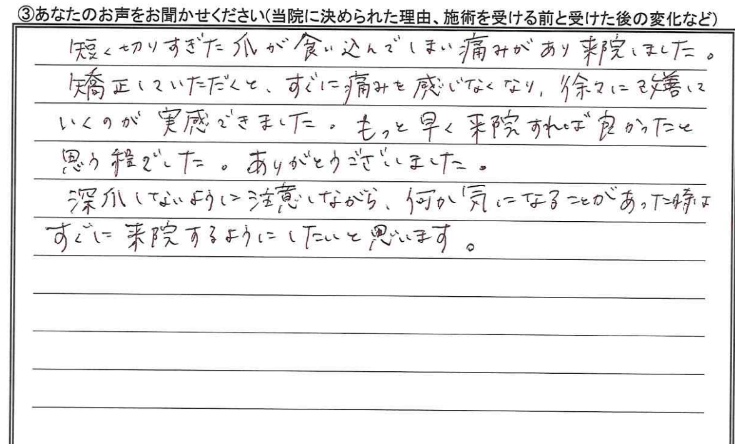 ③あなたのお声をお聞かせください(当院に決められた理由、施術を受ける前と受けた後の変化など)
短く切りすぎた爪が食い込んでしまい痛みがあり来院しました。
矯正していただくと、すぐに痛みを感じなくなり、徐々に改善して
いくのが実感できました。もっと早く来院すれば良かったと
思う程でした。ありがとうございました。
深爪しないように注意しながら、何か気になることがあった時は
すぐに来院するようにしたいと思います。